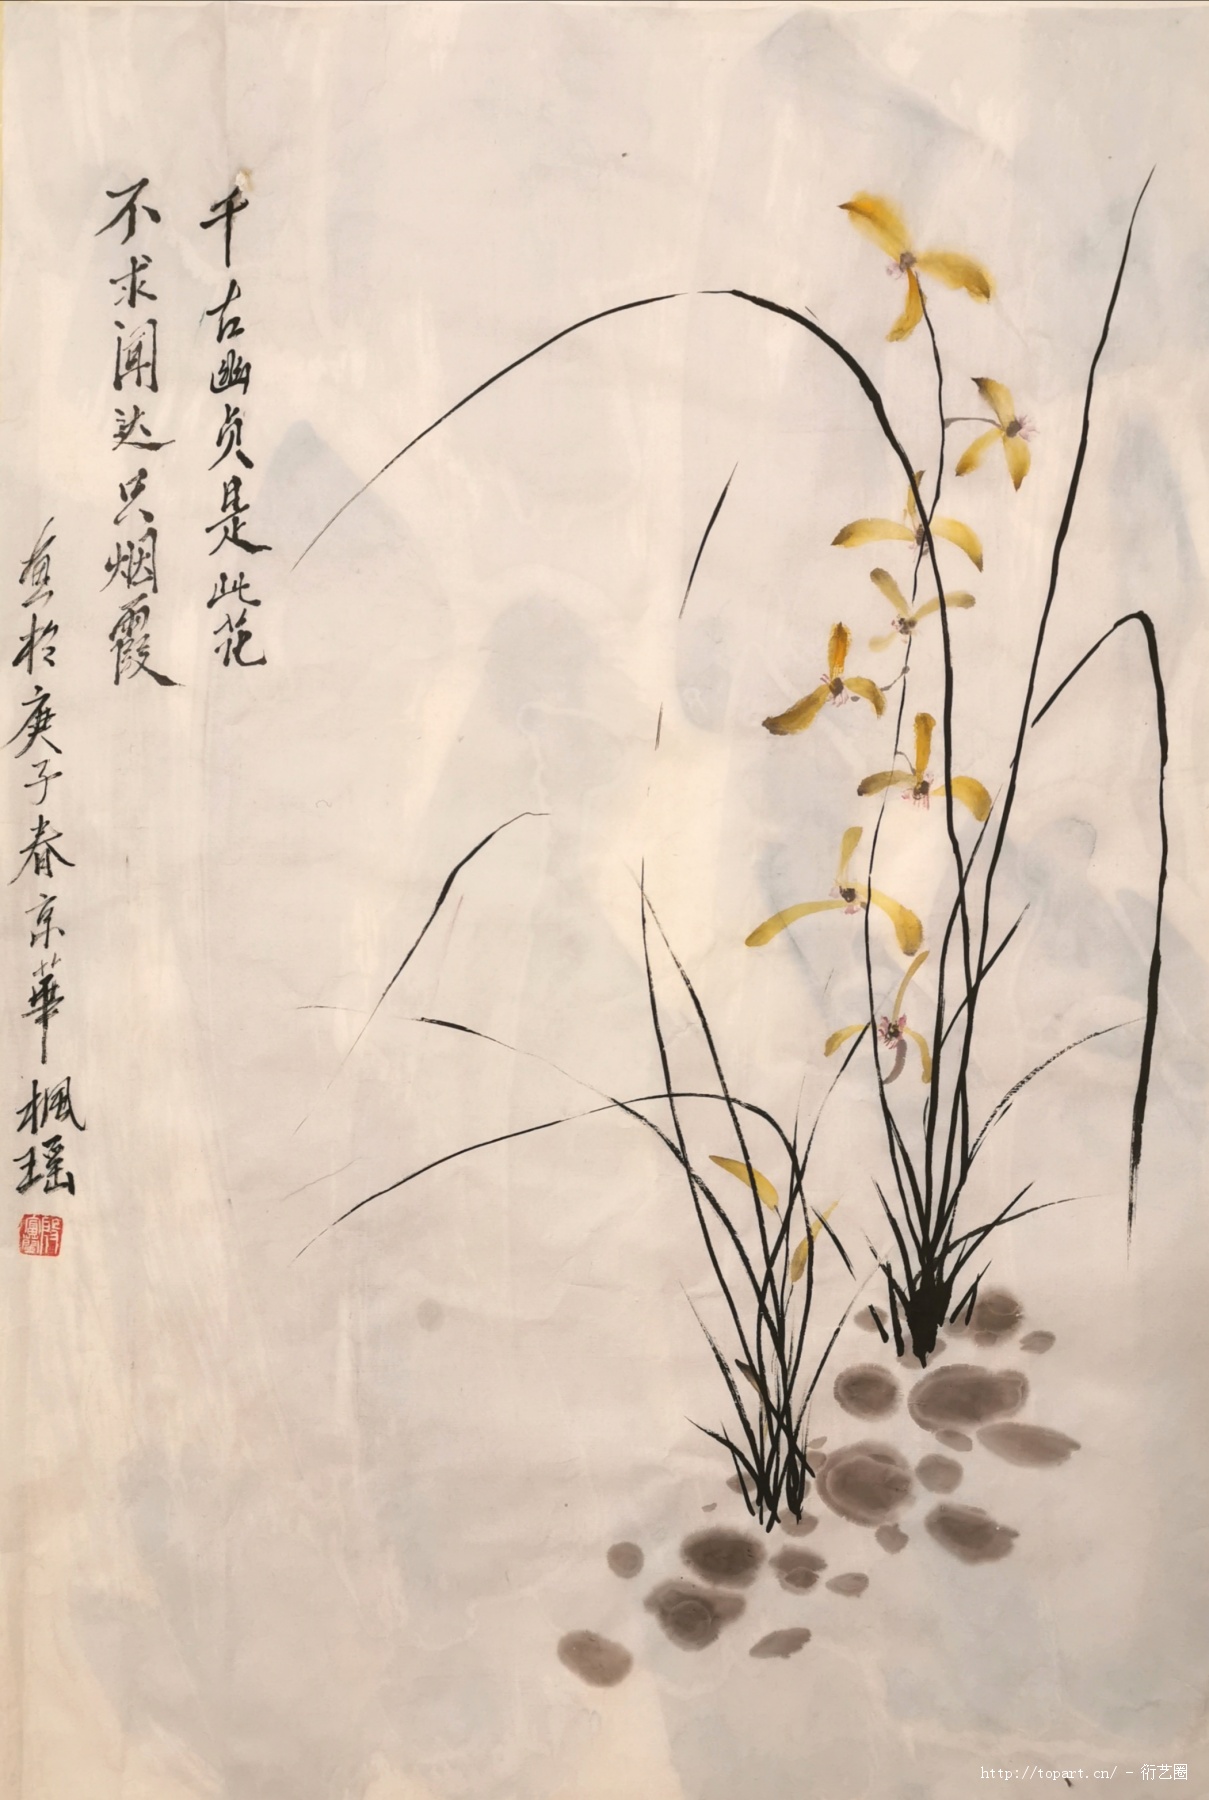 千古幽贞是此花
不求闻达只烟霞
画於庚子春京華楓瑶
http://topart.cn/ - 衍艺圈